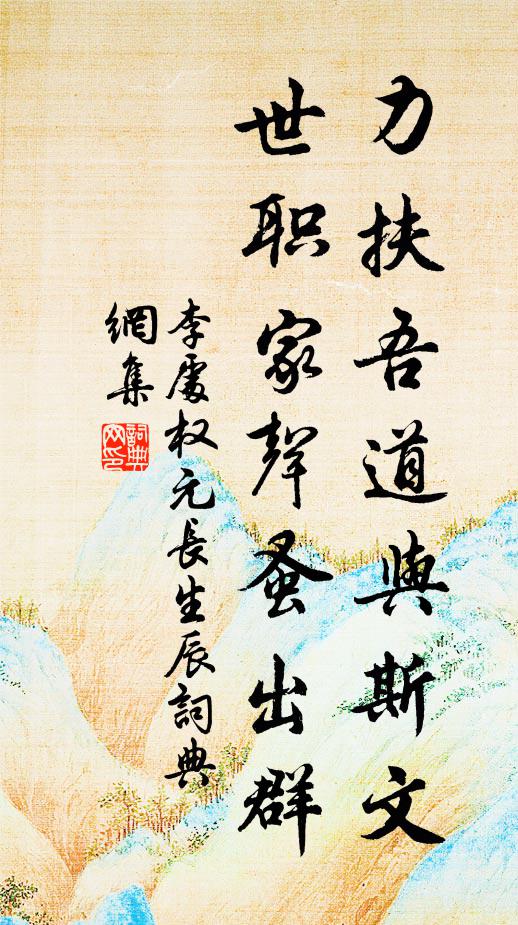 力扶吾道與斯文
世职家聲蚤出群
李處权元長生辰詞典
網集
詞典
网印